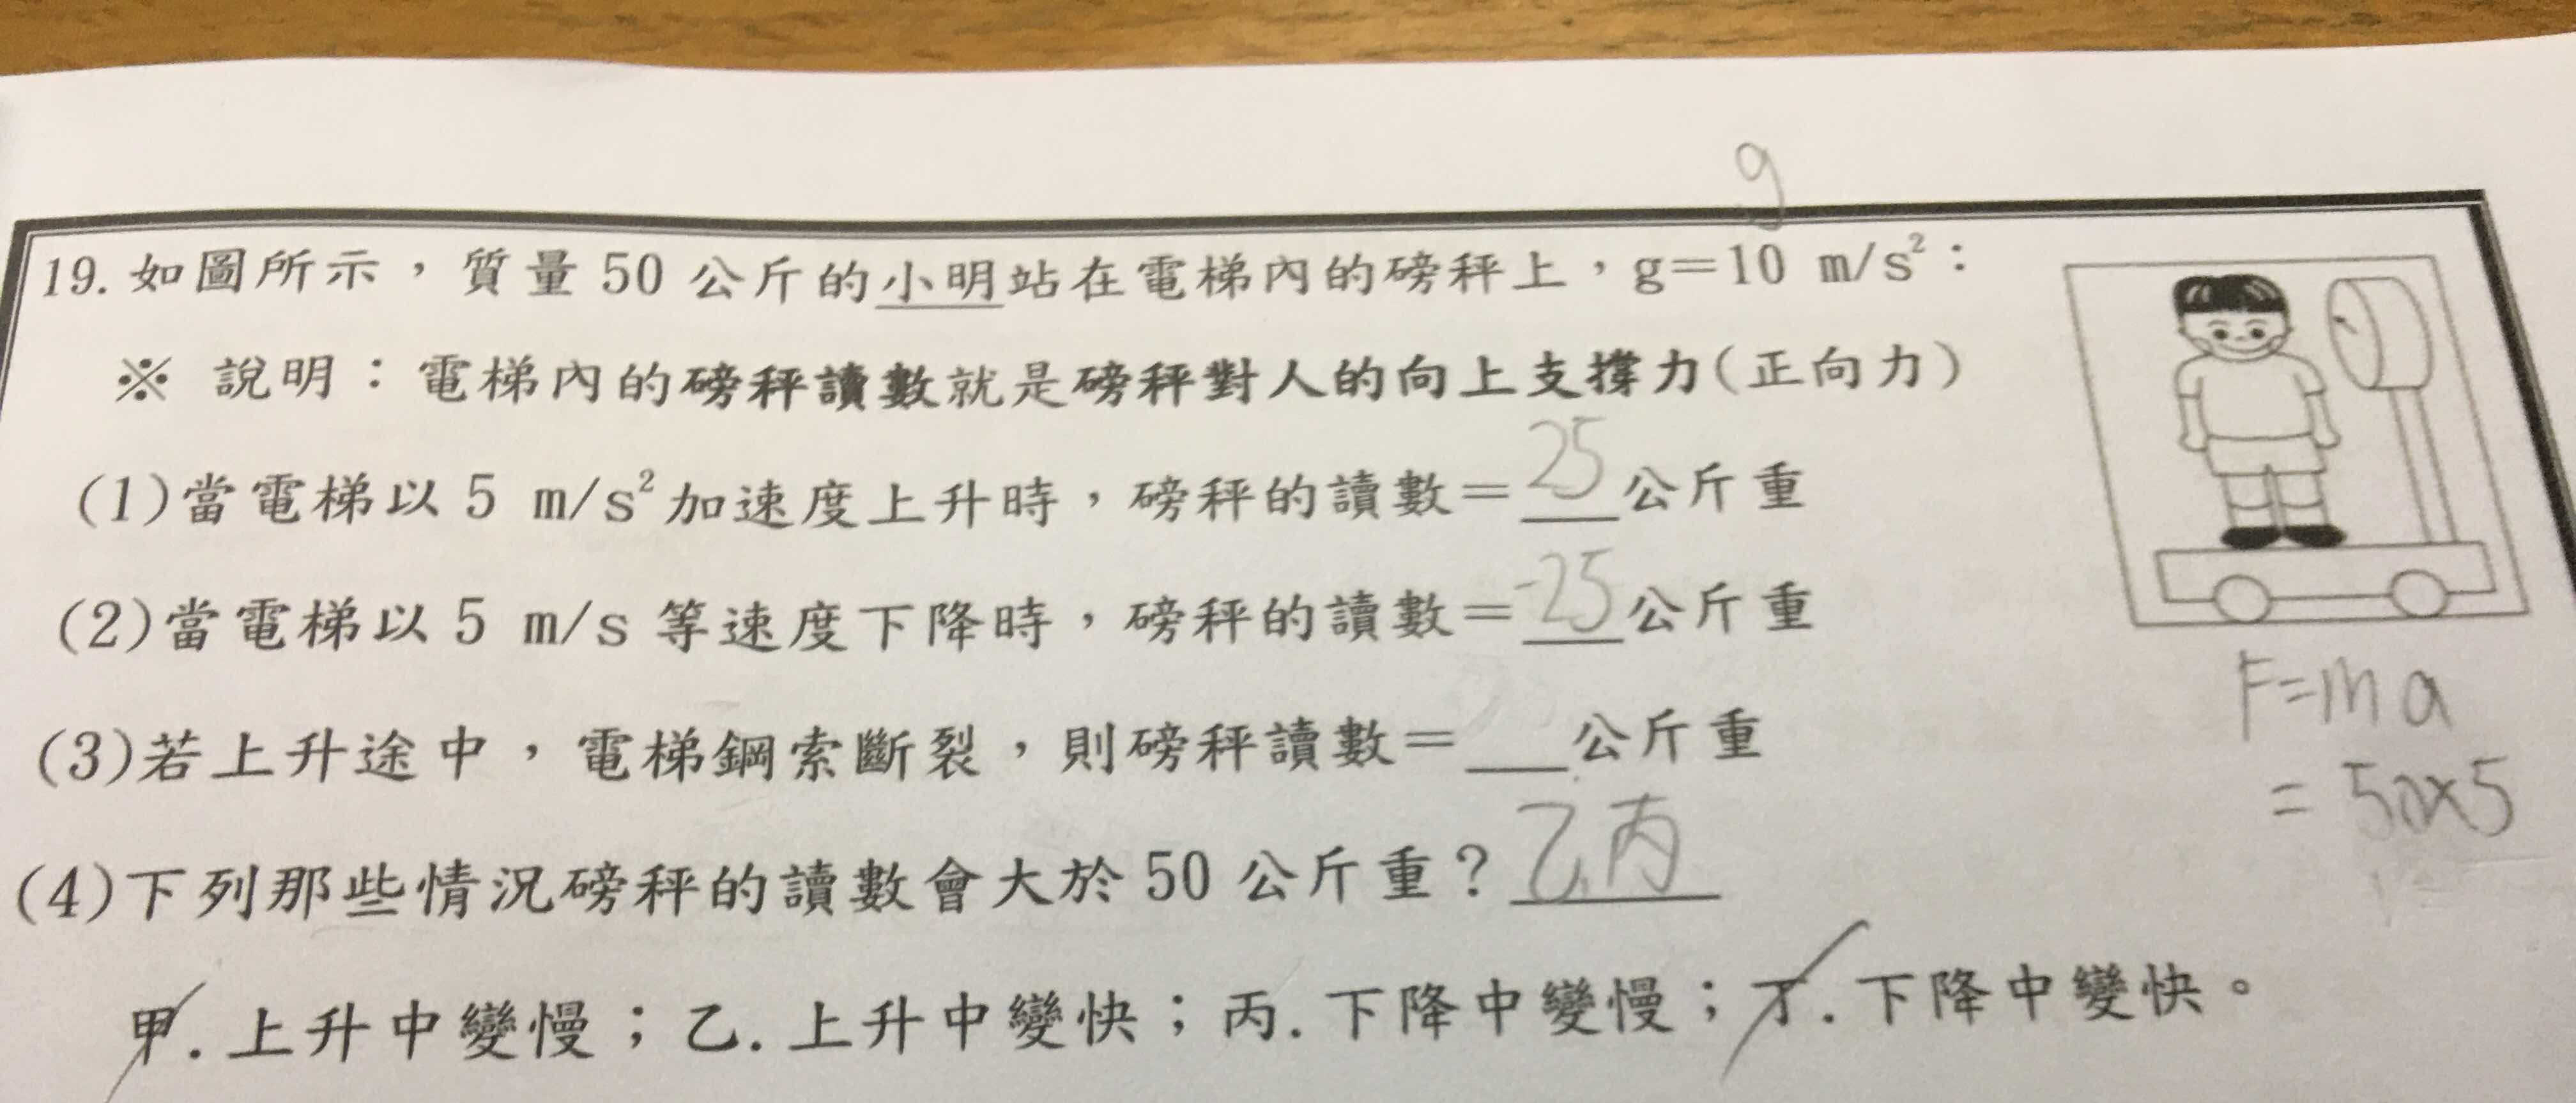 g
19.如圖所示，質量 50 公斤的小明站在電梯內的磅秤上，g=10 m/s²：
※ 說明：電梯內的磅秤讀數就是磅秤對人的向上支撐力(正向力)
(1)當電梯以 5 m/s²加速度上升時，磅秤的讀數=25公斤重
(2)當電梯以 5 m/s 等速度下降時，磅秤的讀數=-25公斤重
(3)若上升途中，電梯鋼索斷裂，則磅秤讀數=__公斤重
F=ma
=50×5
(4)下列那些情況磅秤的讀數會大於 50 公斤重？乙,丙
甲.上升中變慢；乙.上升中變快；丙.下降中變慢；丁.下降中變快。